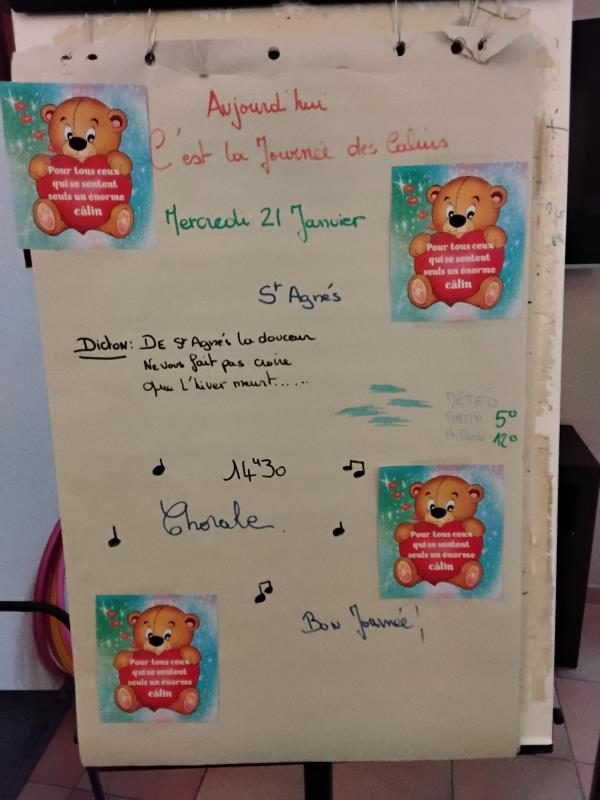 Aujourd'hui
C'est la Journée des Calins
Pour tous ceux
qui se sentent
seuls un énorme
câlin
Mercredi 21 Janvier
Pour tous ceux
qui se sentent
seuls un énorme
câlin
St Agnés
Dicton: De St Agnés la douceur
Ne vous fait pas croire
Que l'hiver meurt......
MÉTÉO
MATIN 5°
A.Midi 12°
14h30
Chorale.
Pour tous ceux
qui se sentent
seuls un énorme
câlin
Bon Journée!
Pour tous ceux
qui se sentent
seuls un énorme
câlin